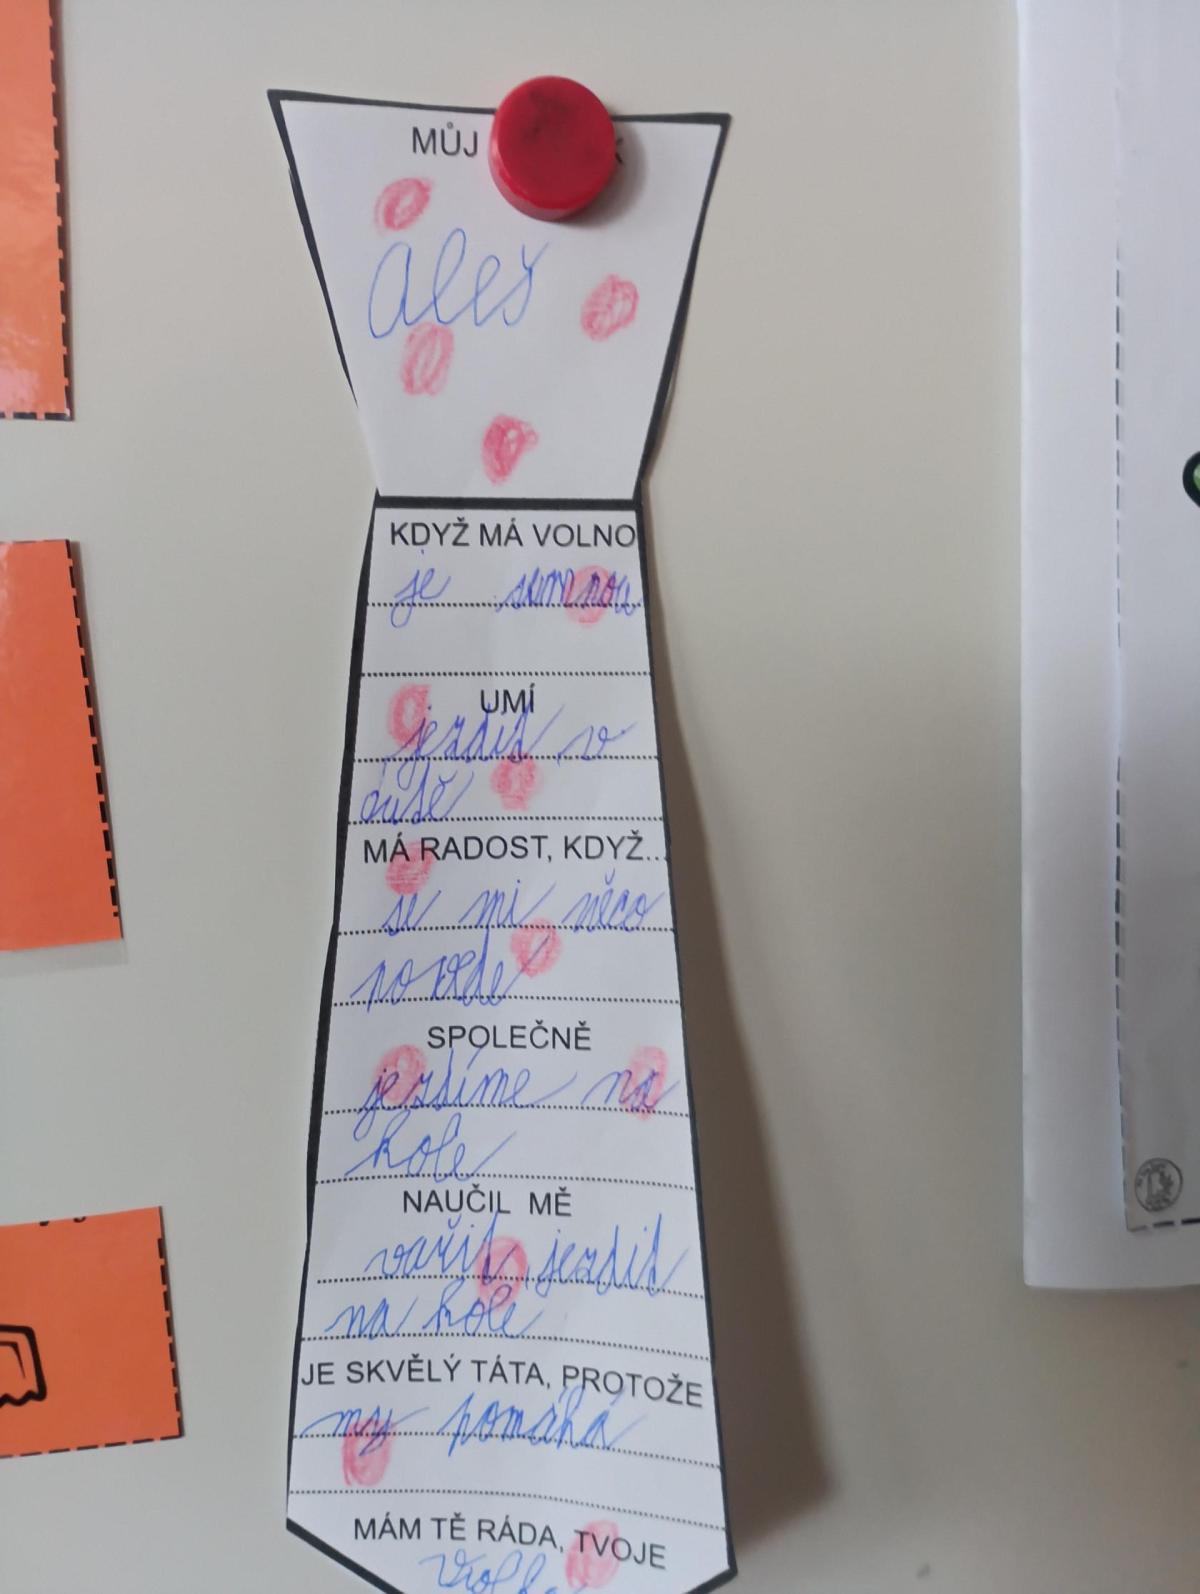 MŮJ
Aleš
KDYŽ MÁ VOLNO
je semnou
UMÍ
jezdit v
autě
MÁ RADOST, KDYŽ...
se mi něco
povede
SPOLEČNĚ
jezdíme na
kole
NAUČIL MĚ
vařit, jezdit
na kole
JE SKVĚLÝ TÁTA, PROTOŽE
my pomáhá
MÁM TĚ RÁDA, TVOJE